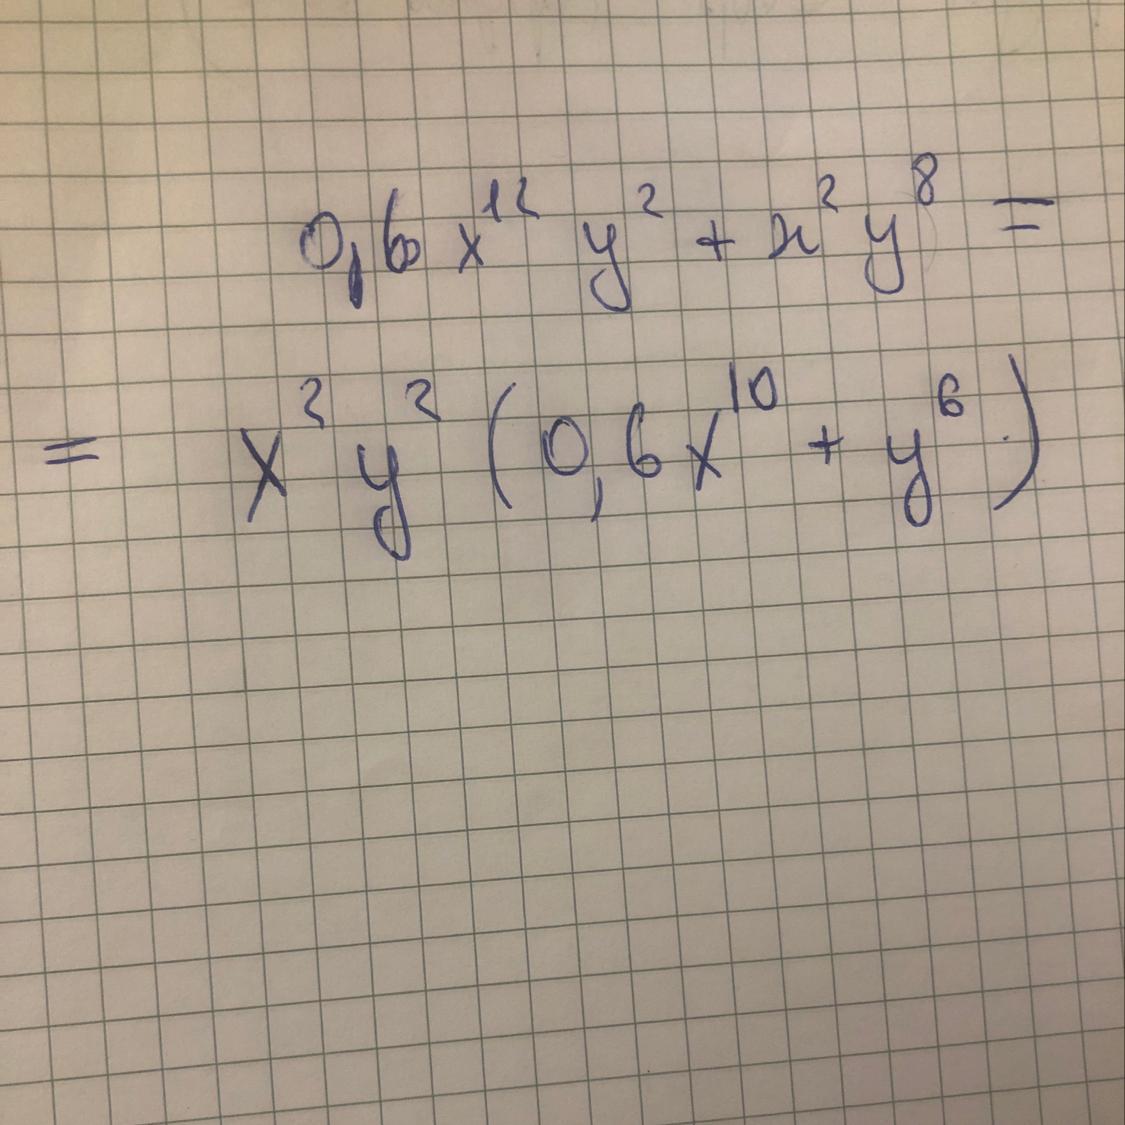 0,6 x¹² y² + x² y⁸ =
= x² y² (0,6 x¹⁰ + y⁶)